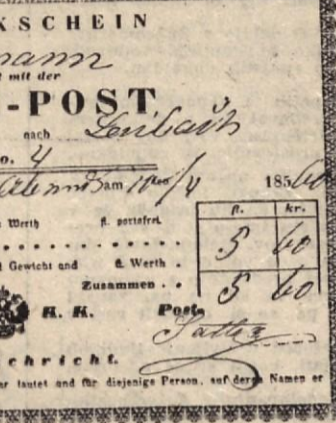 KSCHEIN
mann
mit der
-POST
nach Laibach
o. 4
am 10ten/4 1856
fl. kr.
Werth fl. portofrei
5 60
Gewicht und fl. Werth .
Zusammen . .
5 60
K. K. Post-
Sattler
chricht.
lautet und für diejenige Person, auf deren Namen er